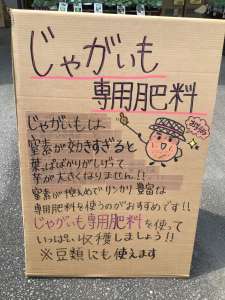 じゃがいも
専用肥料
じゃがいもは
窒素が効きすぎると
葉っぱばかりがしげって
芋が大きくなりません!!
窒素が控えめでリンカリ豊富な
専用肥料を使うのがおすすめです!!
じゃがいも専用肥料を使って
いっぱい収穫しましょう!!
※豆類にも使えます